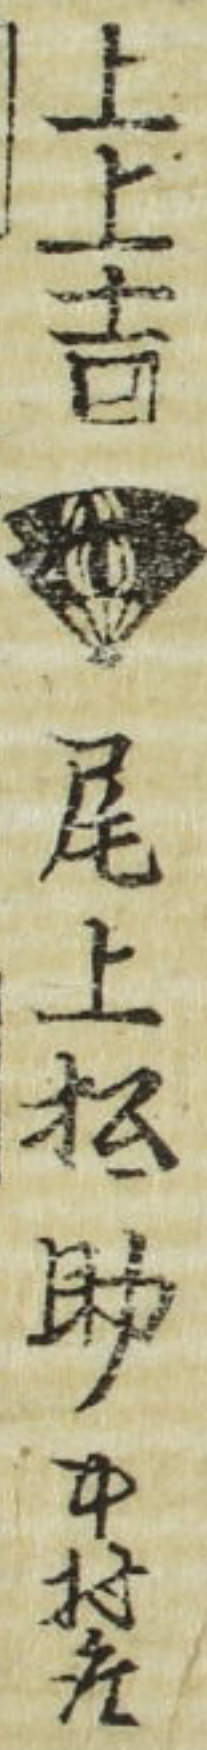 上上吉
尾上松助
中村座